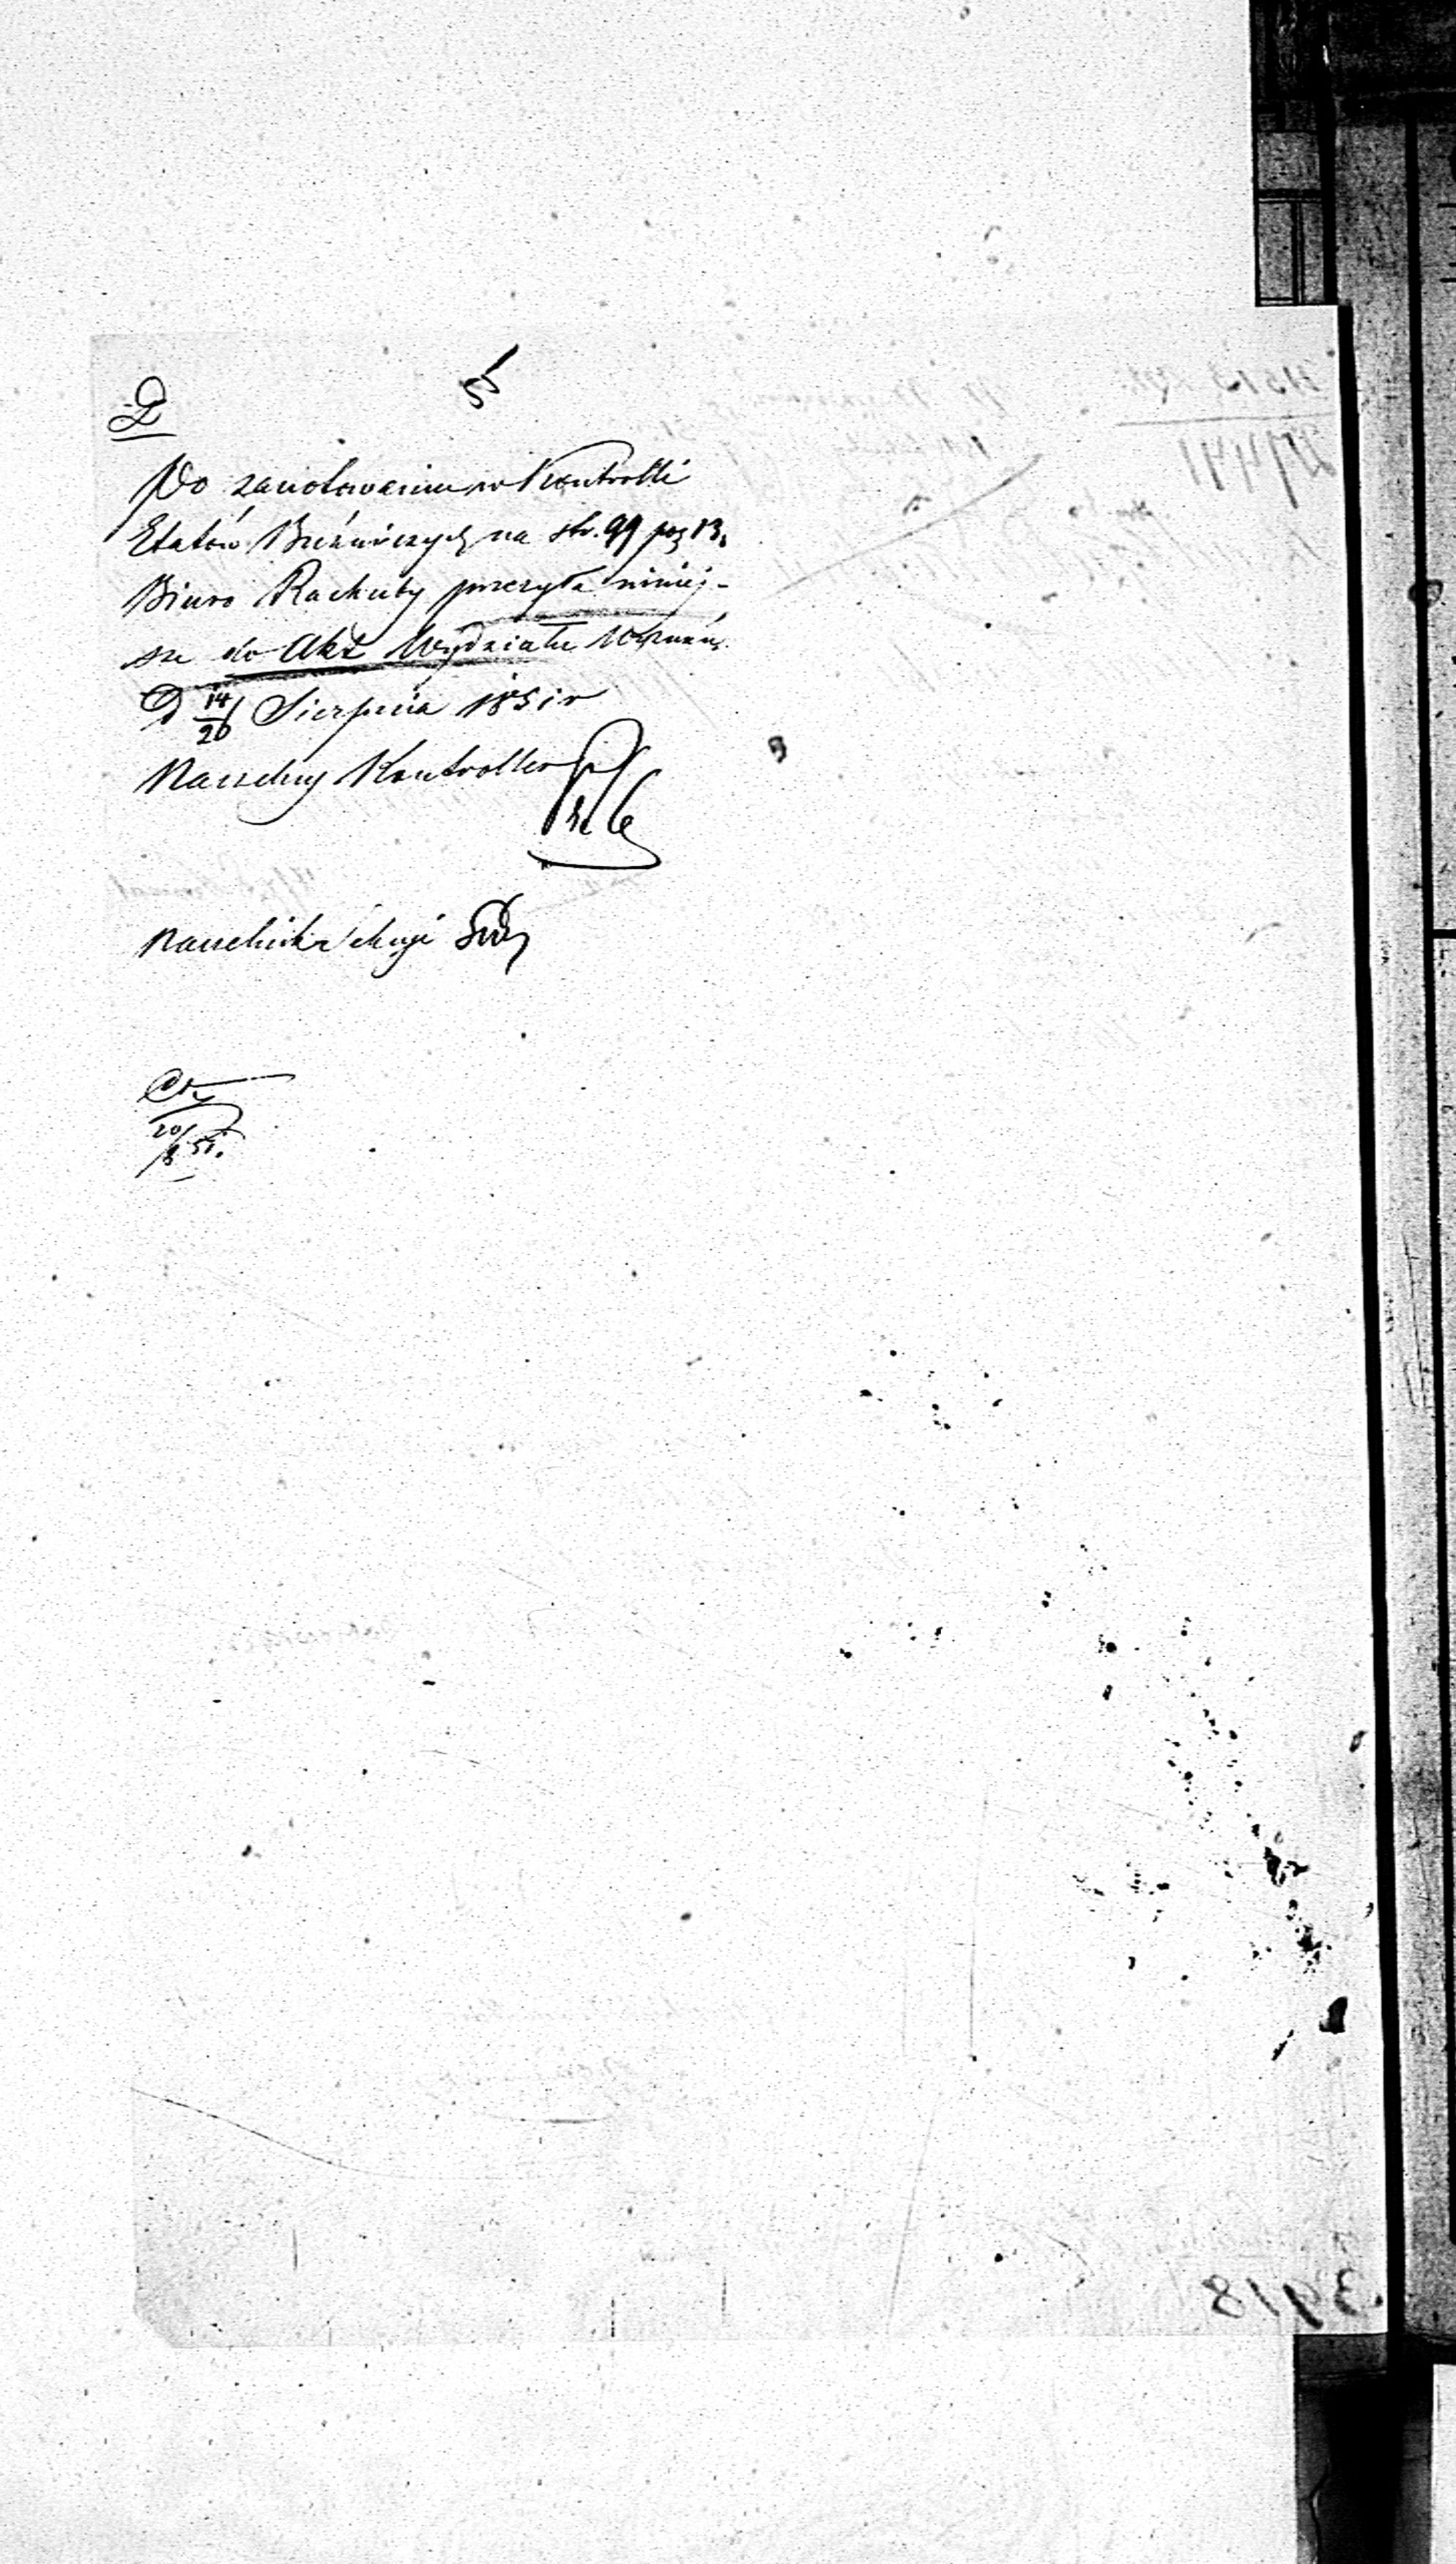 55
Po zanotowaniu w Kontrolli
Etatów Bóżniczych na str. 99 poz 13.
Biuro Rachuby przesyła niniej-
sze do Akt Wydziału Wyznań.
D 14/26 Sierpnia 1851 r
Naczelny Kontroller
Naczelnik Sekcyi
20/8 51.
3918